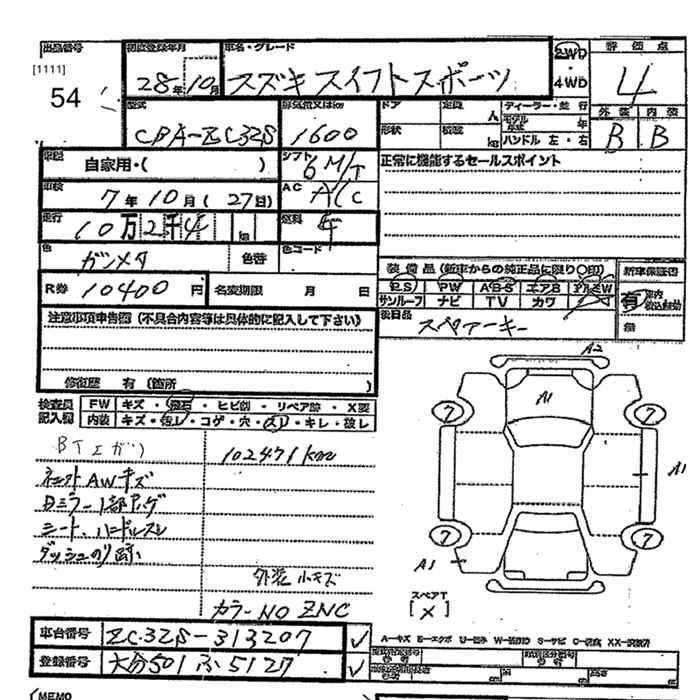 出品番号 初度登録年月 車名・グレード 2WD・4WD 評価点
[1111]
54 28年10月 スズキ スイフトスポーツ 4
型式 排気量又はkw ドア 定員 人 ディーラー・並行 外装 内装
CBA-ZC32S 1600 形状 積載 kg モデル年式 年 ハンドル 左・右 B B
車歴 自家用・( ) シフト 6M/T 正常に機能するセールスポイント
車検 7年10月(27日) AC A/C
走行 10万2千4 km 燃料
色 ガンメタ 色替 色コード
装備品(新車からの純正品に限り○印) 新車保証書
R券 10400円 名変期限 月 日
P.S PW ABS エアB アルミW 有
サンルーフ ナビ TV カワ 無
後日品 スペアーキー
注意事項申告欄(不具合内容等は具体的に記入して下さい)
修復歴 有(箇所 )
検査員記入欄 FW キズ・飛石・ヒビ割・リペア跡・X要
内装 キズ・汚レ・コゲ・穴・スレ・キレ・破レ
102471km
AWキズ
シート、ハンドルスレ
ダッシュのり跡
外装小キズ
カラーNO ZNC
A2
A1
7 7
A1
7 7
A1
スペアT
[×]
車台番号 ZC32S-313207 ✓
登録番号 大分501ふ5127 ✓
MEMO